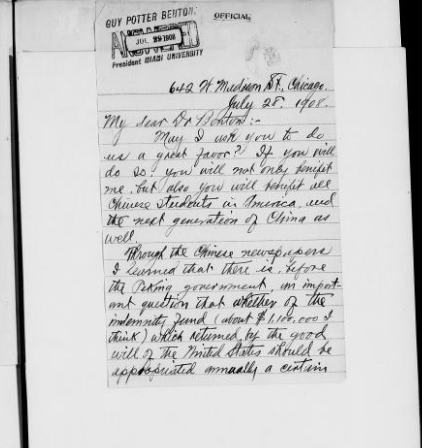 GUY POTTER BENTON.
OFFICIAL.
ANSWERED
JUL 29 1908
President MIAMI UNIVERSITY
642 W. Madison St., Chicago.
July 28. 1908.
My dear Dr. Benton:-
May I ask you to do
us a great favor? If you will
do so, you will not only benefit
me, but also you will benefit all
Chinese students in America, and
the next generation of China as
well.
Through the Chinese newspapers
I learned that there is, before
the Peking government, an import-
ant question that whether of the
indemnity fund (about $1,100,000 I
think) which returned by the good
will of the United States should be
appropriated annually a certain